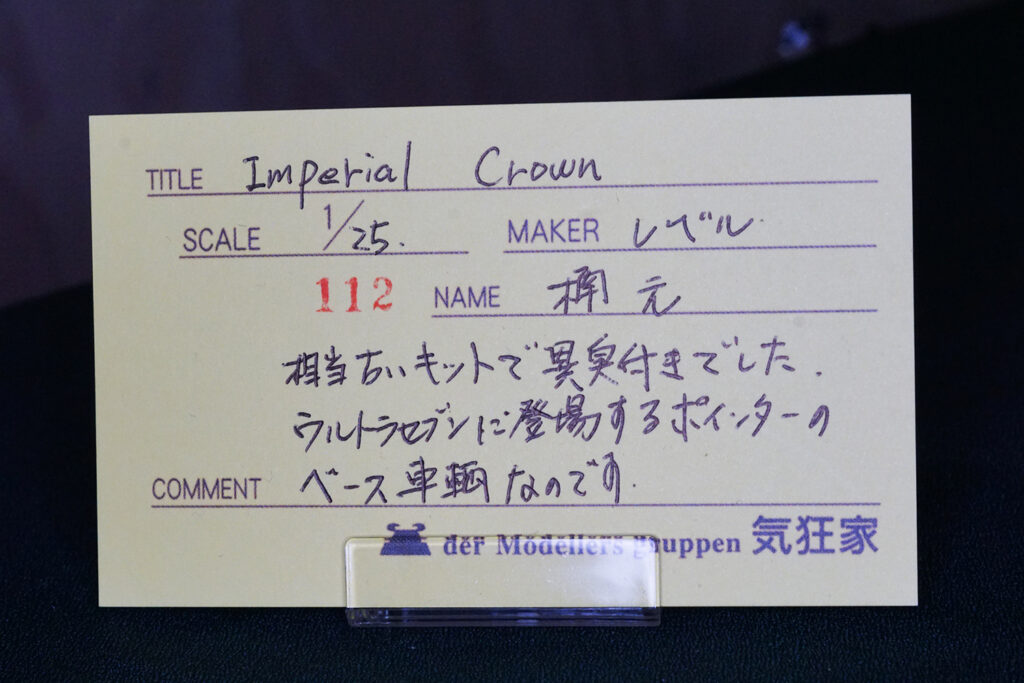 TITLE Imperial Crown
SCALE 1/25. MAKER レベル
112 NAME 元
相当古いキットで異臭付きでした.
ウルトラセブンに登場するポインターの
COMMENT ベース車輌なのです.
der Modellers gruppen 気狂家